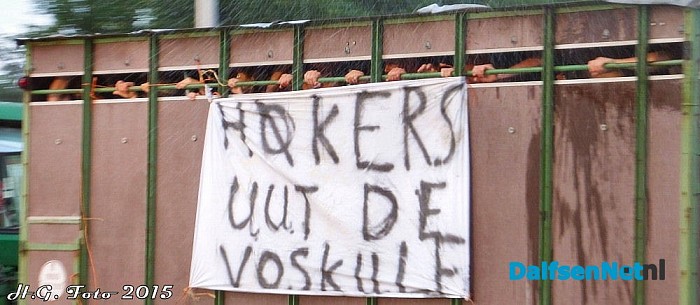 HØKERS
UUT DE
VOSKULE
DalfsenNet.nl
H.G. Foto 2015